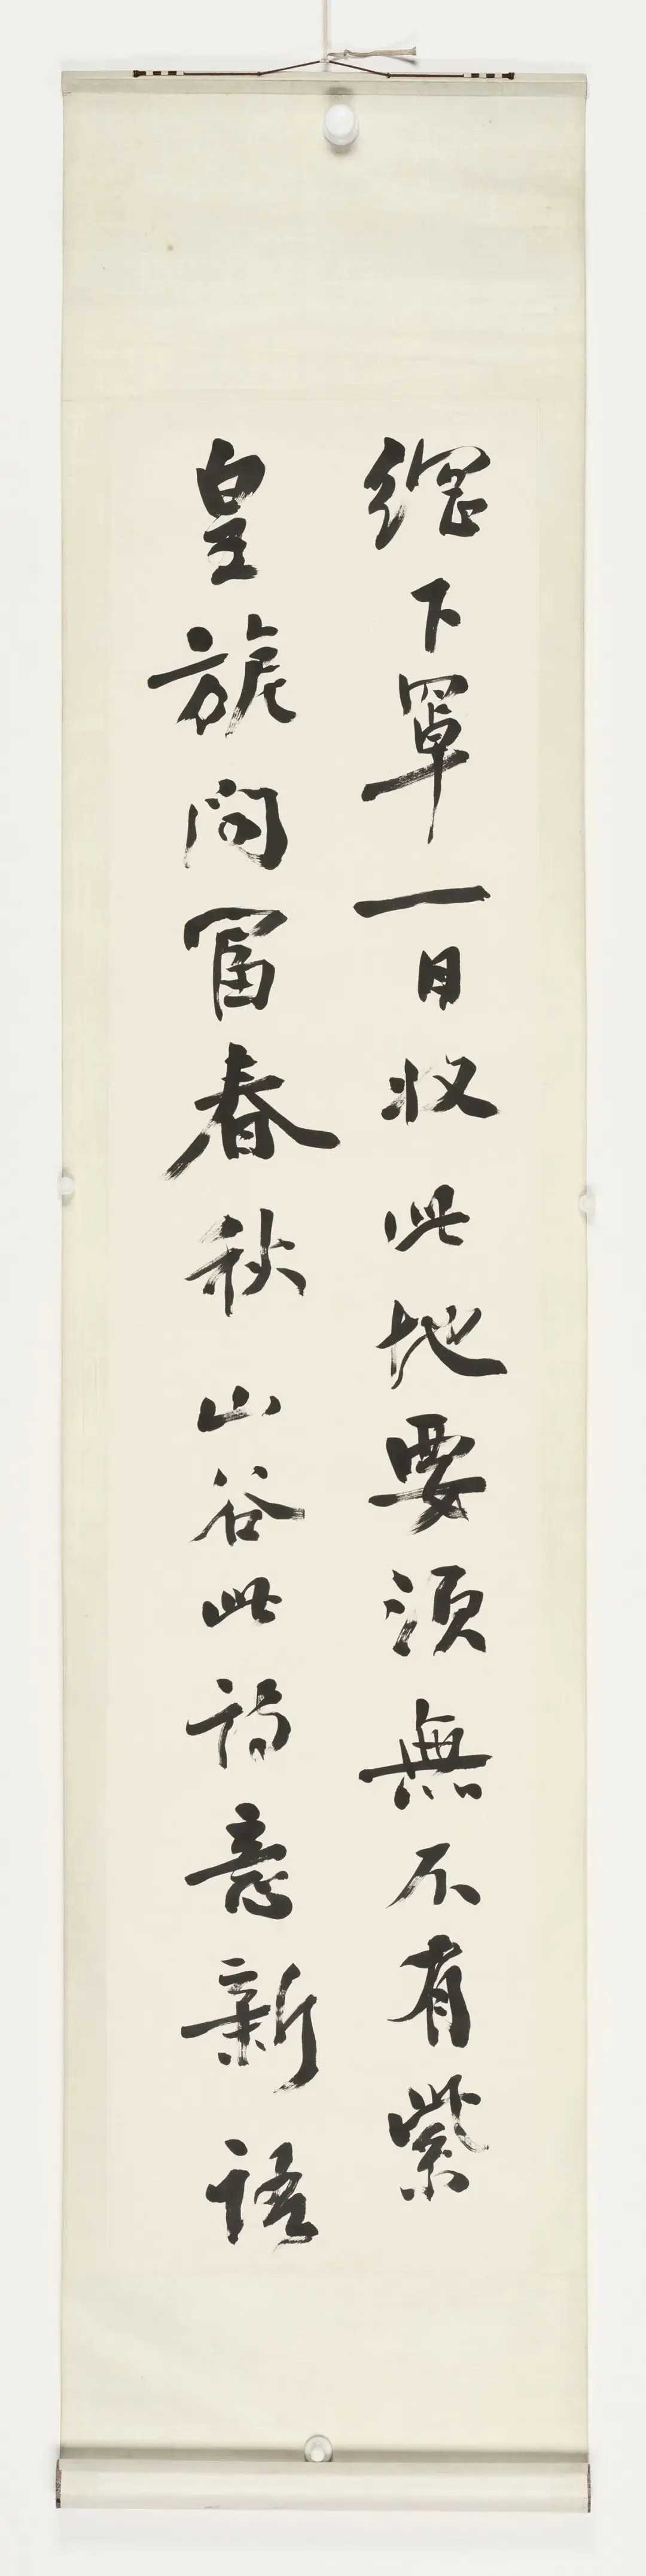 網下罩一日收此地要須無不有紫
皇旋問富春秋 山谷此詩意新語